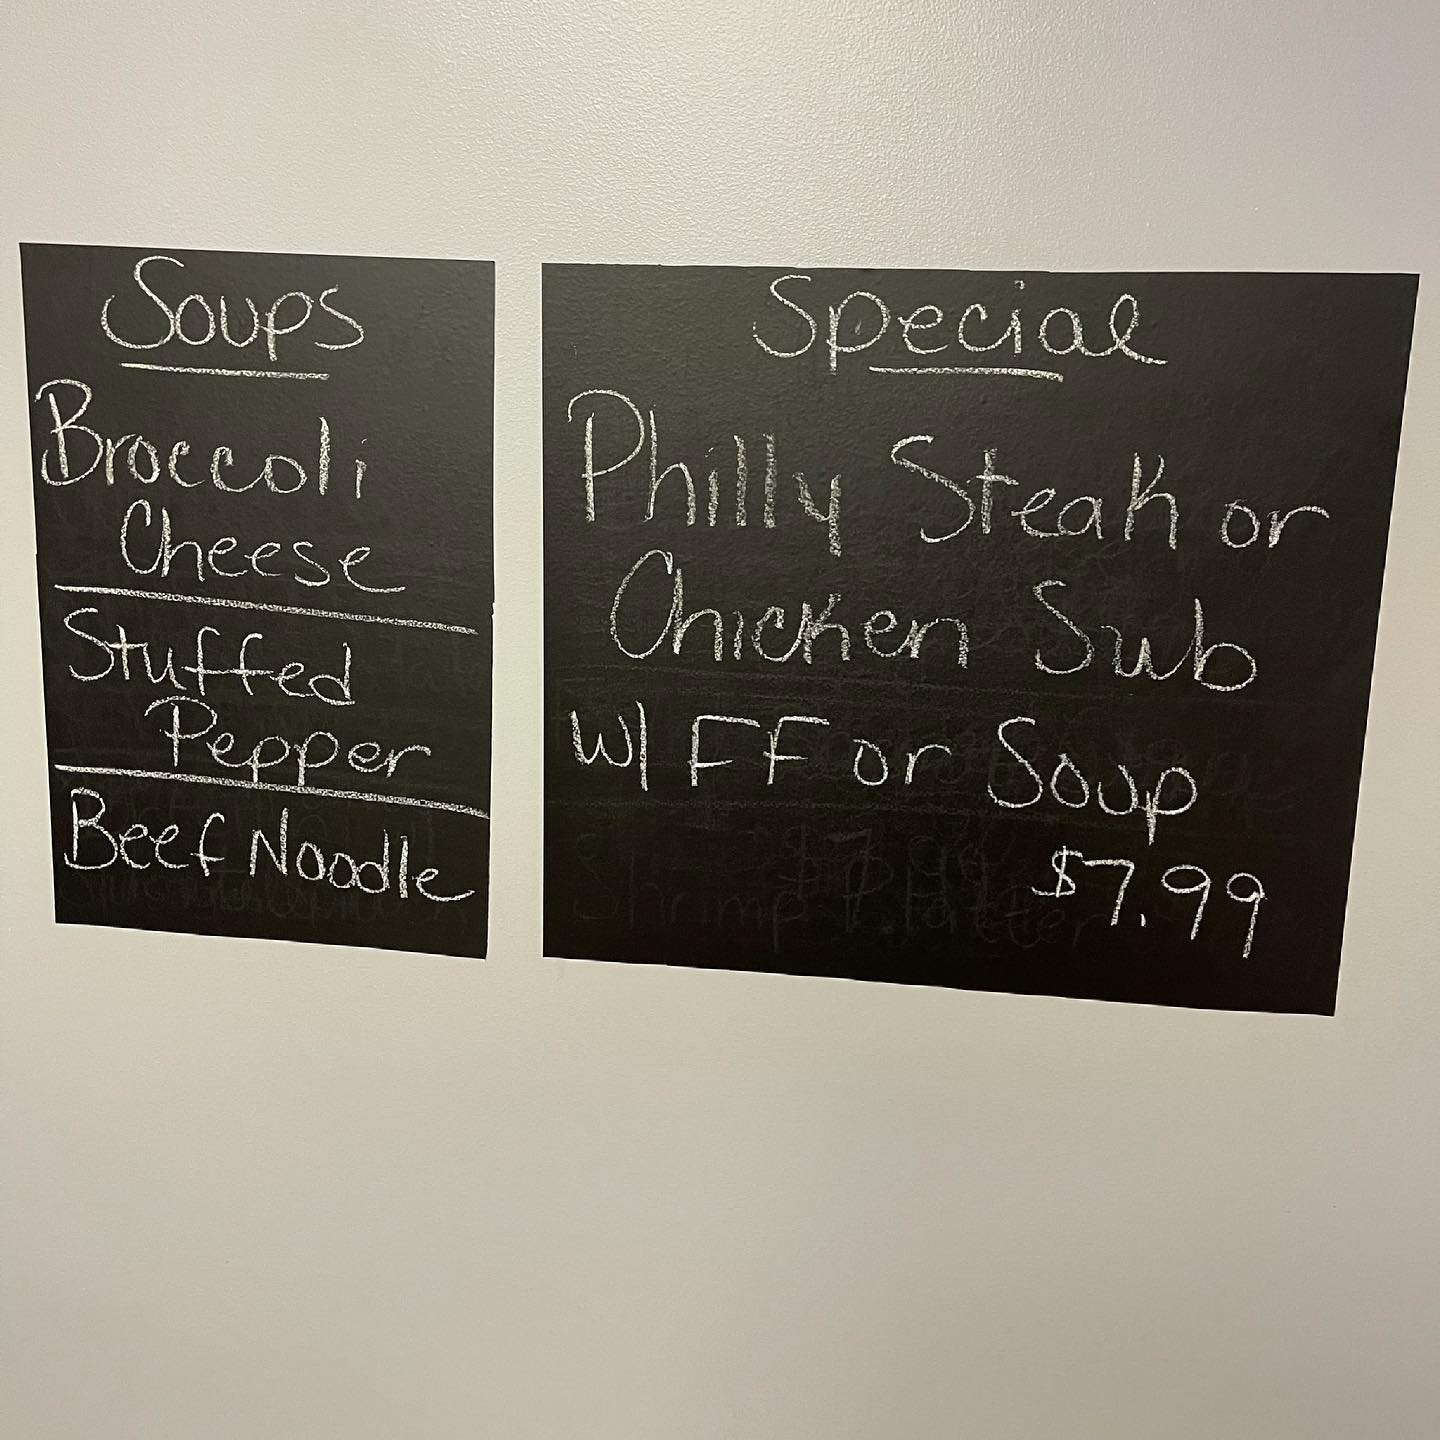 Soups
Broccoli
Cheese
Stuffed
Pepper
Beef Noodle
Special
Philly Steak or
Chicken Sub
W/ FF or Soup
$7.99
Shrimp Platter